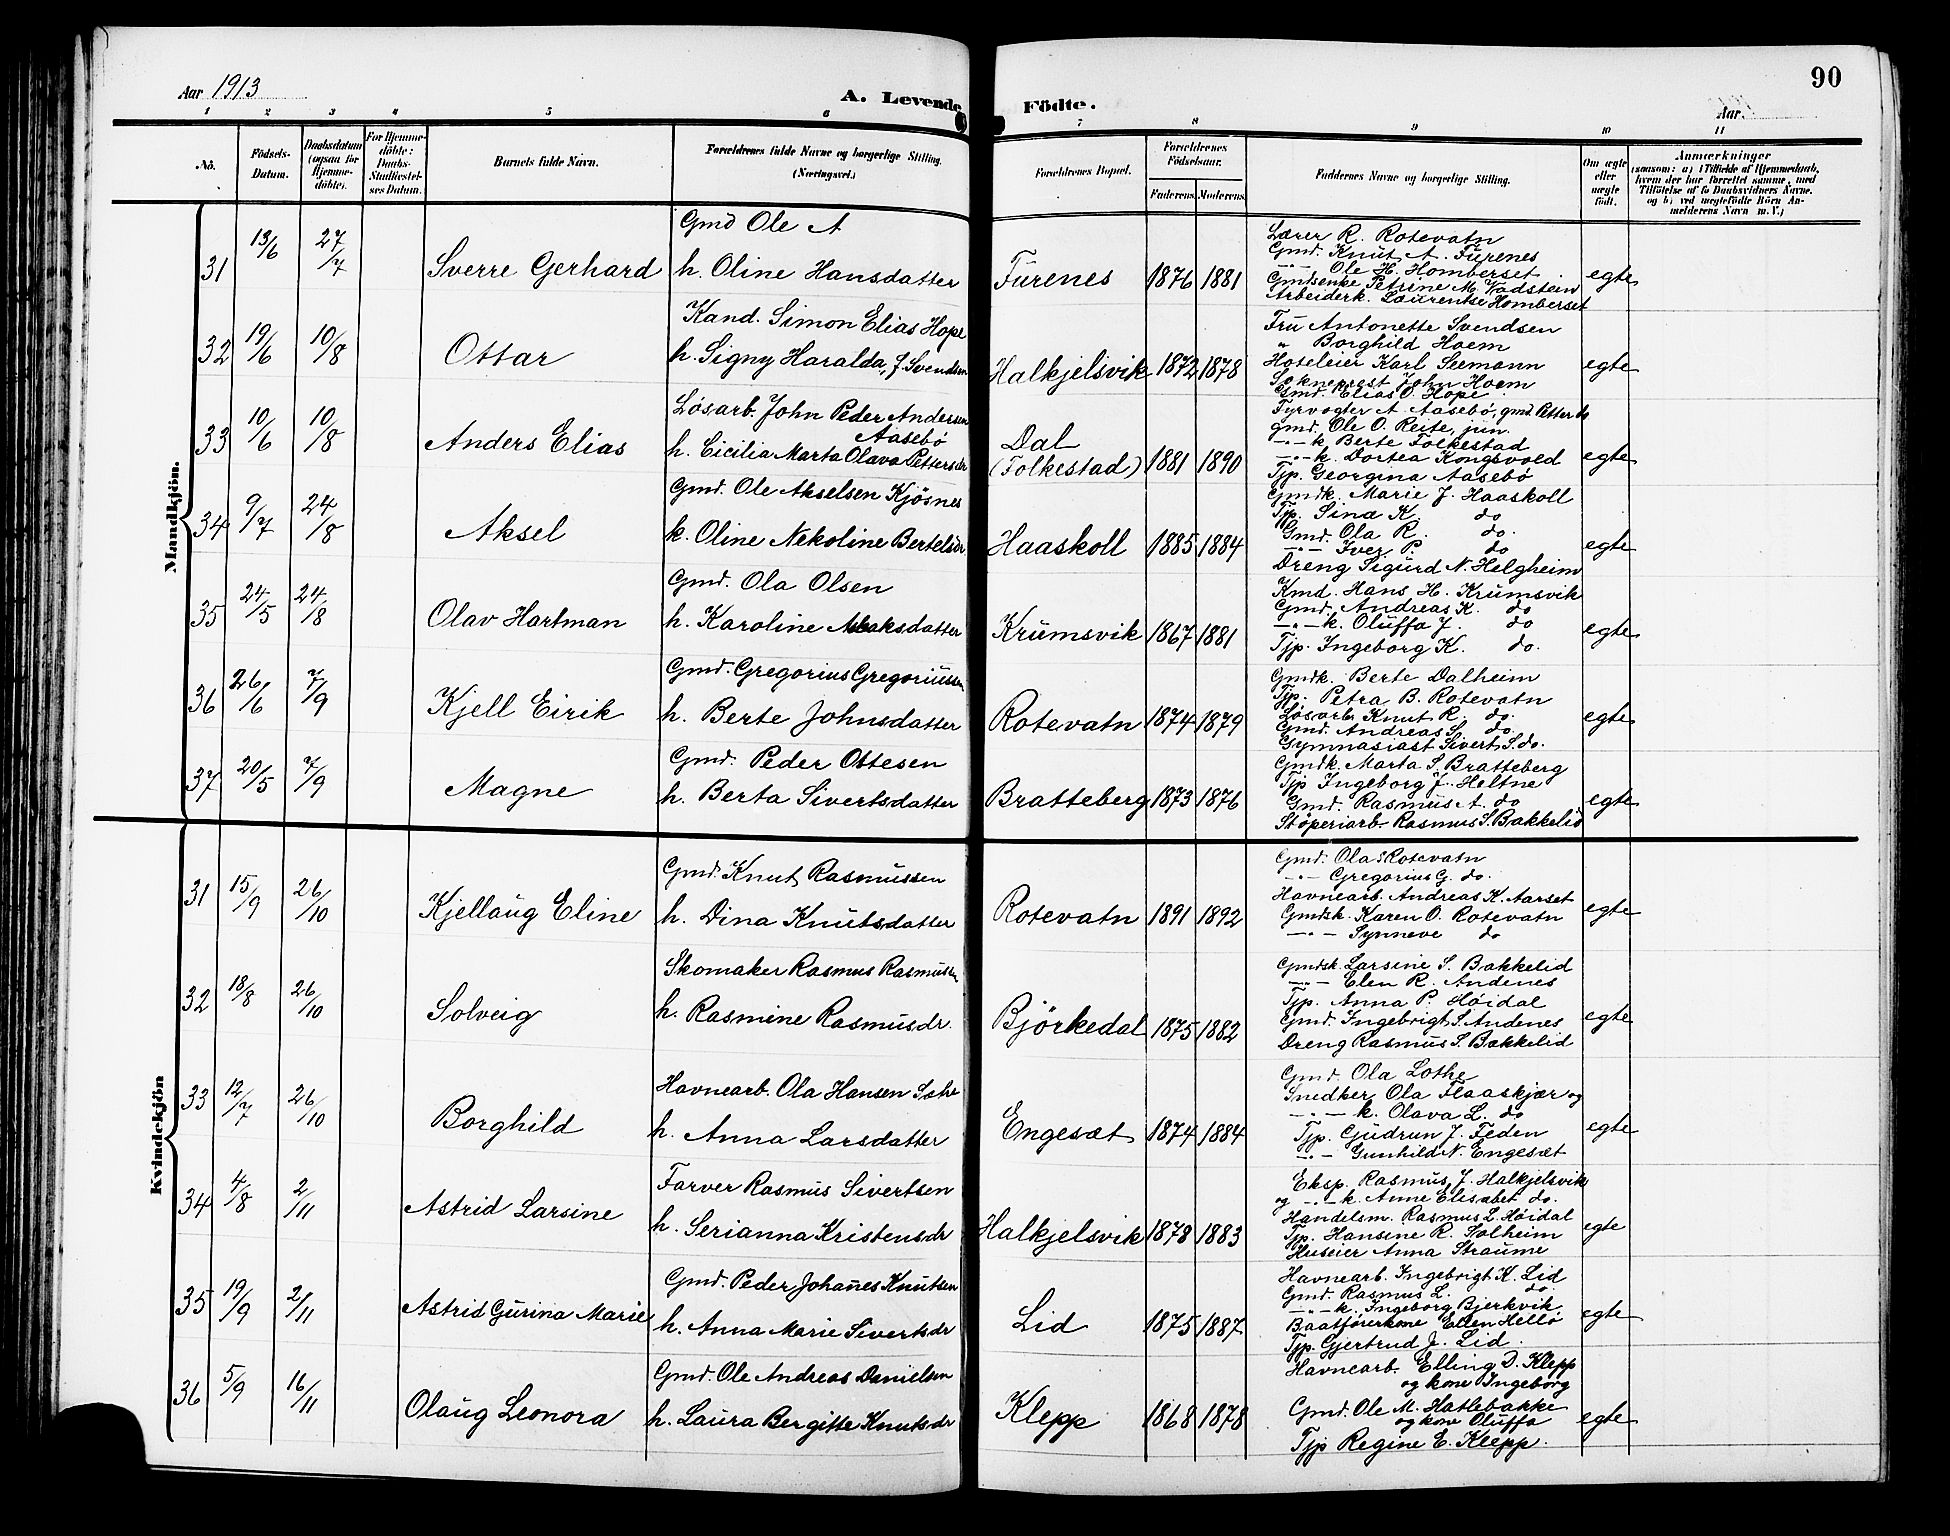 Aar 1913
A. Levende Födte.
90
Aar.
1 2 3 4 5 6 7 8 9 10 11
No.
Födsels-Datum.
Daabsdatum (ogsaa for Hjemmedöbte).
For Hjemmedöbte: Daabs-Stadfæstelses Datum.
Barnets fulde Navn.
Forældrenes fulde Navne og borgerlige Stilling. (Næringsvei.)
Forældrenes Bopæl.
Forældrenes Födselsaar.
Faderens. Moderens.
Faddernes Navne og borgerlige Stilling.
Om ægte eller uægte födt.
Anmærkninger (saasom: a) i Tilfælde af Hjemmedaab, hvem der har forrettet samme, med Tilföielse af to Daabsvidners Navne, og b) ved uægtefödte Börn Anmelderens Navn m. V.)
Mandkjön.
31 13/6 27/7 Sverre Gerhard
Gmd Ole A
h. Oline Hansdatter
Furenes 1876 1881
Lærer R. Rotevatn
Gmd. Knut A. Furenes
-"- Ole H. Homberset
Petrine M. Vadstein
Arbeiderk. Laurentse Homberset
egte
32 19/6 10/8 Ottar
Kand. Simon Elias Hope
h. Signy Haralda, f. Svendsen
Halkjelsvik 1872 1878
Fru Antonette Svendsen
" Borghild Hoem
Hoteleier Karl Seemann
Sokneprest John Hoem
Gmd. Elias O. Hope
egte
33 10/6 10/8 Anders Elias
Løsarb. John Peder Andersen
Aasebö
h. Cicilia Marta Olava Pettersdr
Dal
(Folkestad) 1881 1890
Fyrvogter A. Aasebö, gmd. Petter do
gmd. Ole O. Reite, jun.
-"-k. Berte Folkestad
-"-k. Dortea Kongsvold
Tjp. Georgina Aasebö
egte
34 9/7 24/8 Aksel
Gmd. Ole Akselsen Kjösnes
k. Oline Nekoline Bertelsdr
Haaskoll 1885 1884
Gmdk. Marie J. Haaskoll
Tjp. Sina K. do
Gmd. Ola R. do.
-"- Iver P. do
Dreng Sigurd N. Helgheim
egte
35 24/5 24/8 Olav Hartman
Gmd. Ola Olsen
h. Karoline
Krumsvik 1867 1881
Kmd. Hans H. Krumsvik
Gmd. Andreas K. do
-"-k. Oluffa J. do
Tjp. Ingeborg K. do.
egte
36 26/6 7/9 Kjell Eirik
Gmd. Gregorius Gregoriussen
h. Berte Johnsdatter
Rotevatn 1874 1879
Gmdk. Berte Dalheim
Tjp. Petra B. Rotevatn
Løsarb. Knut R. do.
Gmd. Andreas S. do.
Gymnasiast Sivert S. do.
egte
37 20/5 7/9 Magne
Gmd. Peder Ottesen
h. Berta Sivertsdatter
Bratteberg 1873 1876
Gmdk. Marta S. Bratteberg
Tjp Ingeborg J. Heltne
Gmd. Rasmus A. do
Støperiarb. Rasmus S. Bakkelid
egte
Kvindekjön
31 15/9 26/10 Kjellaug Eline
Gmd. Knut Rasmussen
h. Dina Knutsdatter
Rotevatn 1891 1892
Gmd. Ola S Rotevatn
-"- Gregorius G. do.
Havnearb. Andreas K. Aarset
Gmdsk. Karen O. Rotevatn
-"- Synneve do
egte
32 18/8 26/10 Solveig
Skomaker Rasmus Rasmussen
h. Rasmine Rasmusdr.
Björkedal 1875 1882
Gmdsk. Larsine S. Bakkelid
-"- Elen R. Andenes
Tjp. Anna P. Höidal
Gmd. Ingebrigt S. Andenes
Dreng Rasmus S. Bakkelid
egte
33 12/7 26/10 Borghild
Havnearb. Ola Hansen
h. Anna Larsdatter
Engesæt 1874 1884
Gmd. Ola Lothe
Snedker Ola Flaaskjær og
-"- k. Olava L. do
Tjp. Gudrun J. Feden
-"- Gunhild N. Engesæt
egte
34 4/8 2/11 Astrid Larsine
Farver Rasmus Sivertsen
h. Serianna Kristensdr
Halkjelsvik 1878 1883
Eksp. Rasmus J. Halkjelsvik
og -"-k. Anne Elisabet do.
Handelsm. Rasmus L. Höidal
Tjp. Hansine R. Solheim
Huseier Anna Straume
egte
35 19/9 2/11 Astrid Gurina Marie
Gmd. Peder Johanes Knutsen
h. Anna Marie Sivertsdr
Lid 1875 1887
Havnearb. Ingebrigt K. Lid
Gmd. Rasmus L. do.
-"-k. Ingeborg Bjerkvik
Baatførerkone Ellen Hellö
Tjp. Gjertrud J. Lid.
egte
36 5/9 16/11 Olaug Leonora
Gmd. Ole Andreas Danielsen
h. Laura Bergitte Knutsdr
Klepp 1868 1878
Havnearb. Elling D. Klepp
og kone Ingeborg
Gmd. Ole M. Hatlebakke
og kone Oluffa
Tjp Regine E. Klepp.
egte